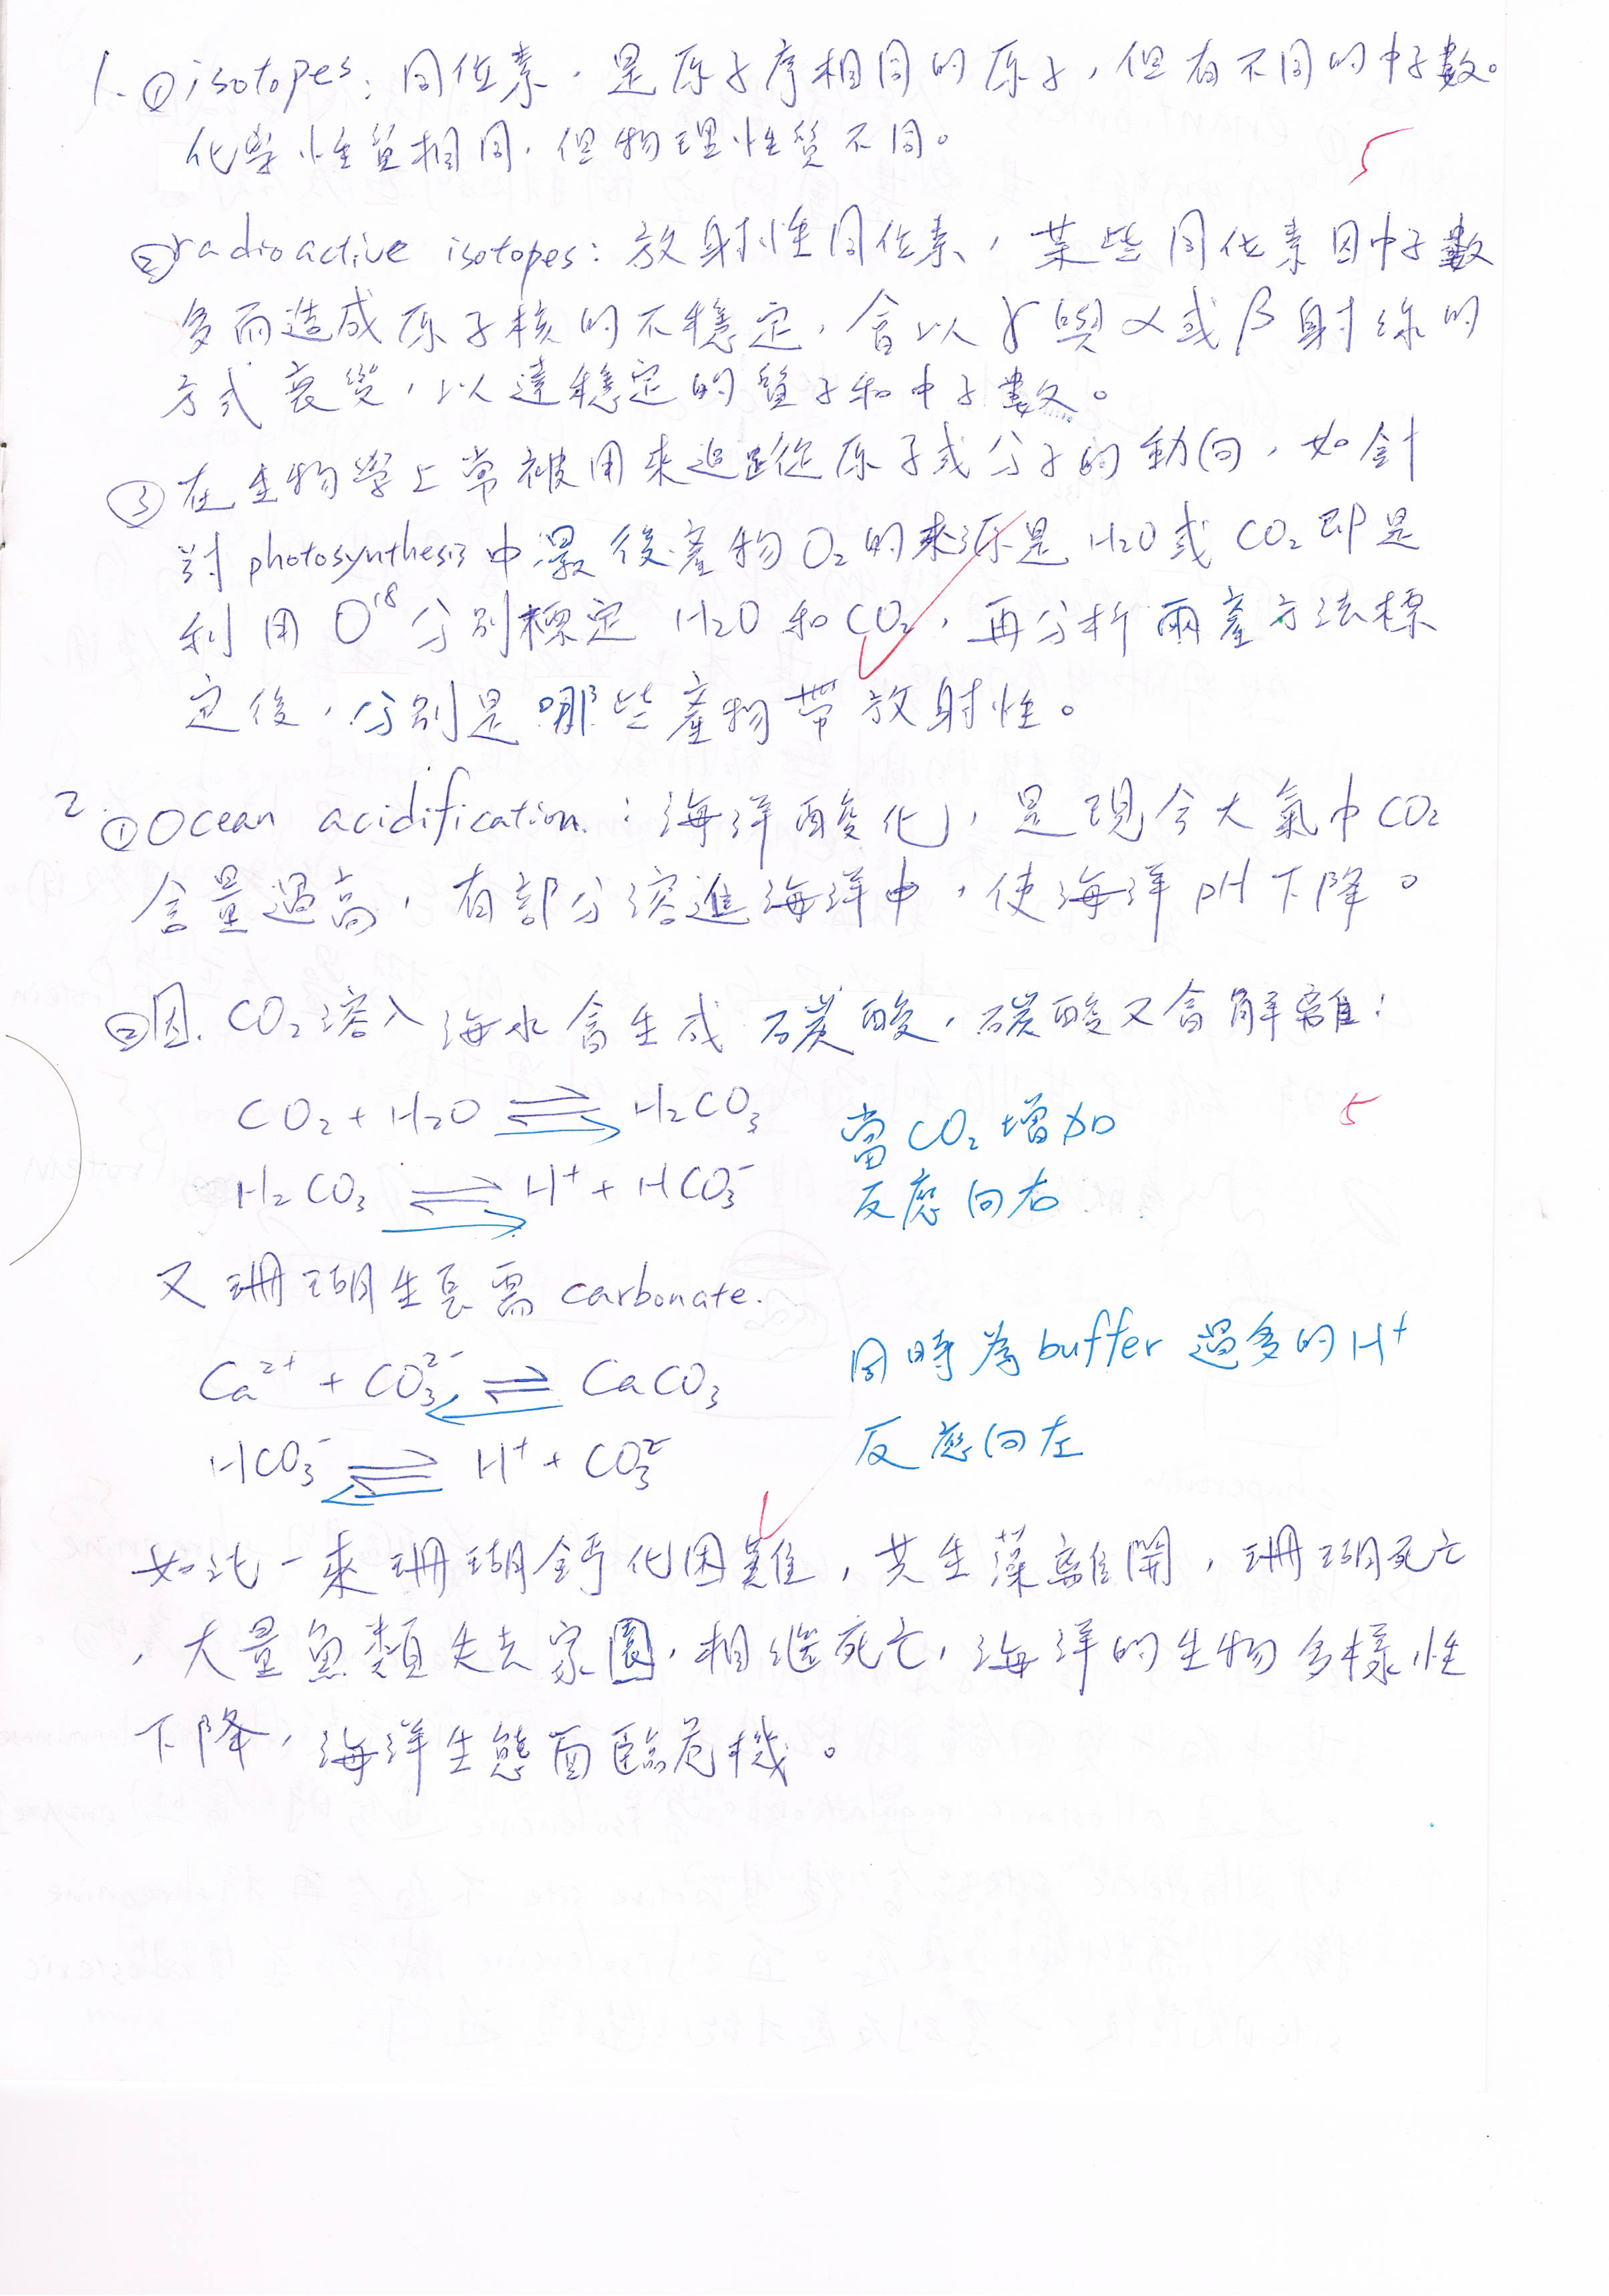 1. ① isotopes: 同位素，是原子序相同的原子，但有不同的中子數。
化學性質相同，但物理性質不同。
5
② radioactive isotopes: 放射性同位素，某些同位素因中子數
多而造成原子核的不穩定，會以γ與α或β射線的
方式衰變，以達穩定的質子和中子數。
③ 在生物學上常被用來追蹤原子或分子的動向，如針
對photosynthesis中最後產物O₂的來源是H₂O或CO₂即是
利用O¹⁸分別標定H₂O和CO₂，再分析兩產方法標
定後，分別是哪些產物帶放射性。
2. ① Ocean acidification.: 海洋酸化，是現今大氣中CO₂
含量過高，有部分溶進海洋中，使海洋pH下降。
② 因. CO₂溶入海水會生成碳酸，碳酸又會解離:
CO₂ + H₂O ⇌ H₂CO₃ 當CO₂增加 5
H₂CO₃ ⇌ H⁺ + HCO₃⁻ 反應向右
又珊瑚生長需carbonate.
Ca²⁺ + CO₃²⁻ ⇌ CaCO₃ 同時為buffer過多的H⁺
HCO₃⁻ ⇌ H⁺ + CO₃²⁻ 反應向左
如此一來珊瑚鈣化困難，共生藻離開，珊瑚死亡
，大量魚類失去家園，相繼死亡，海洋的生物多樣性
下降，海洋生態面臨危機。